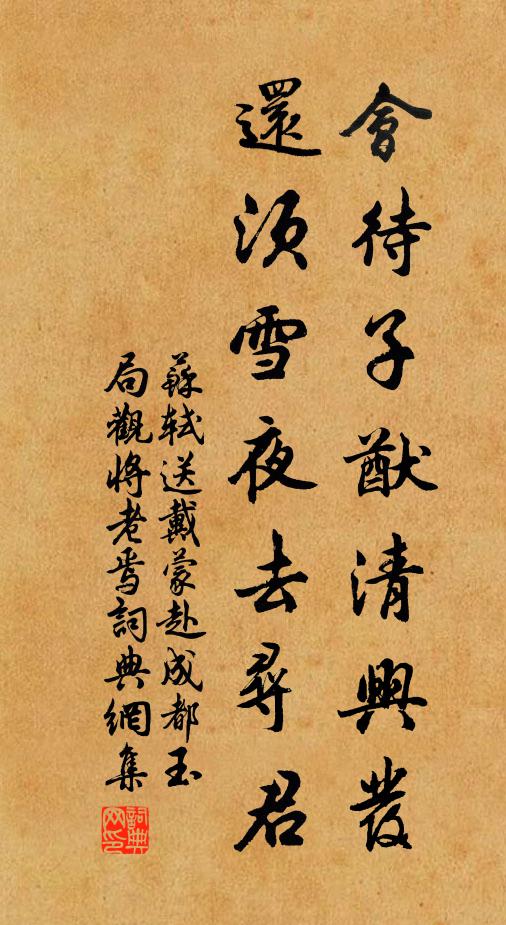 會待子猷清興發
還須雪夜去尋君
蘇軾送戴蒙赴成都玉
局觀將老焉詞典網集
詞典
网印